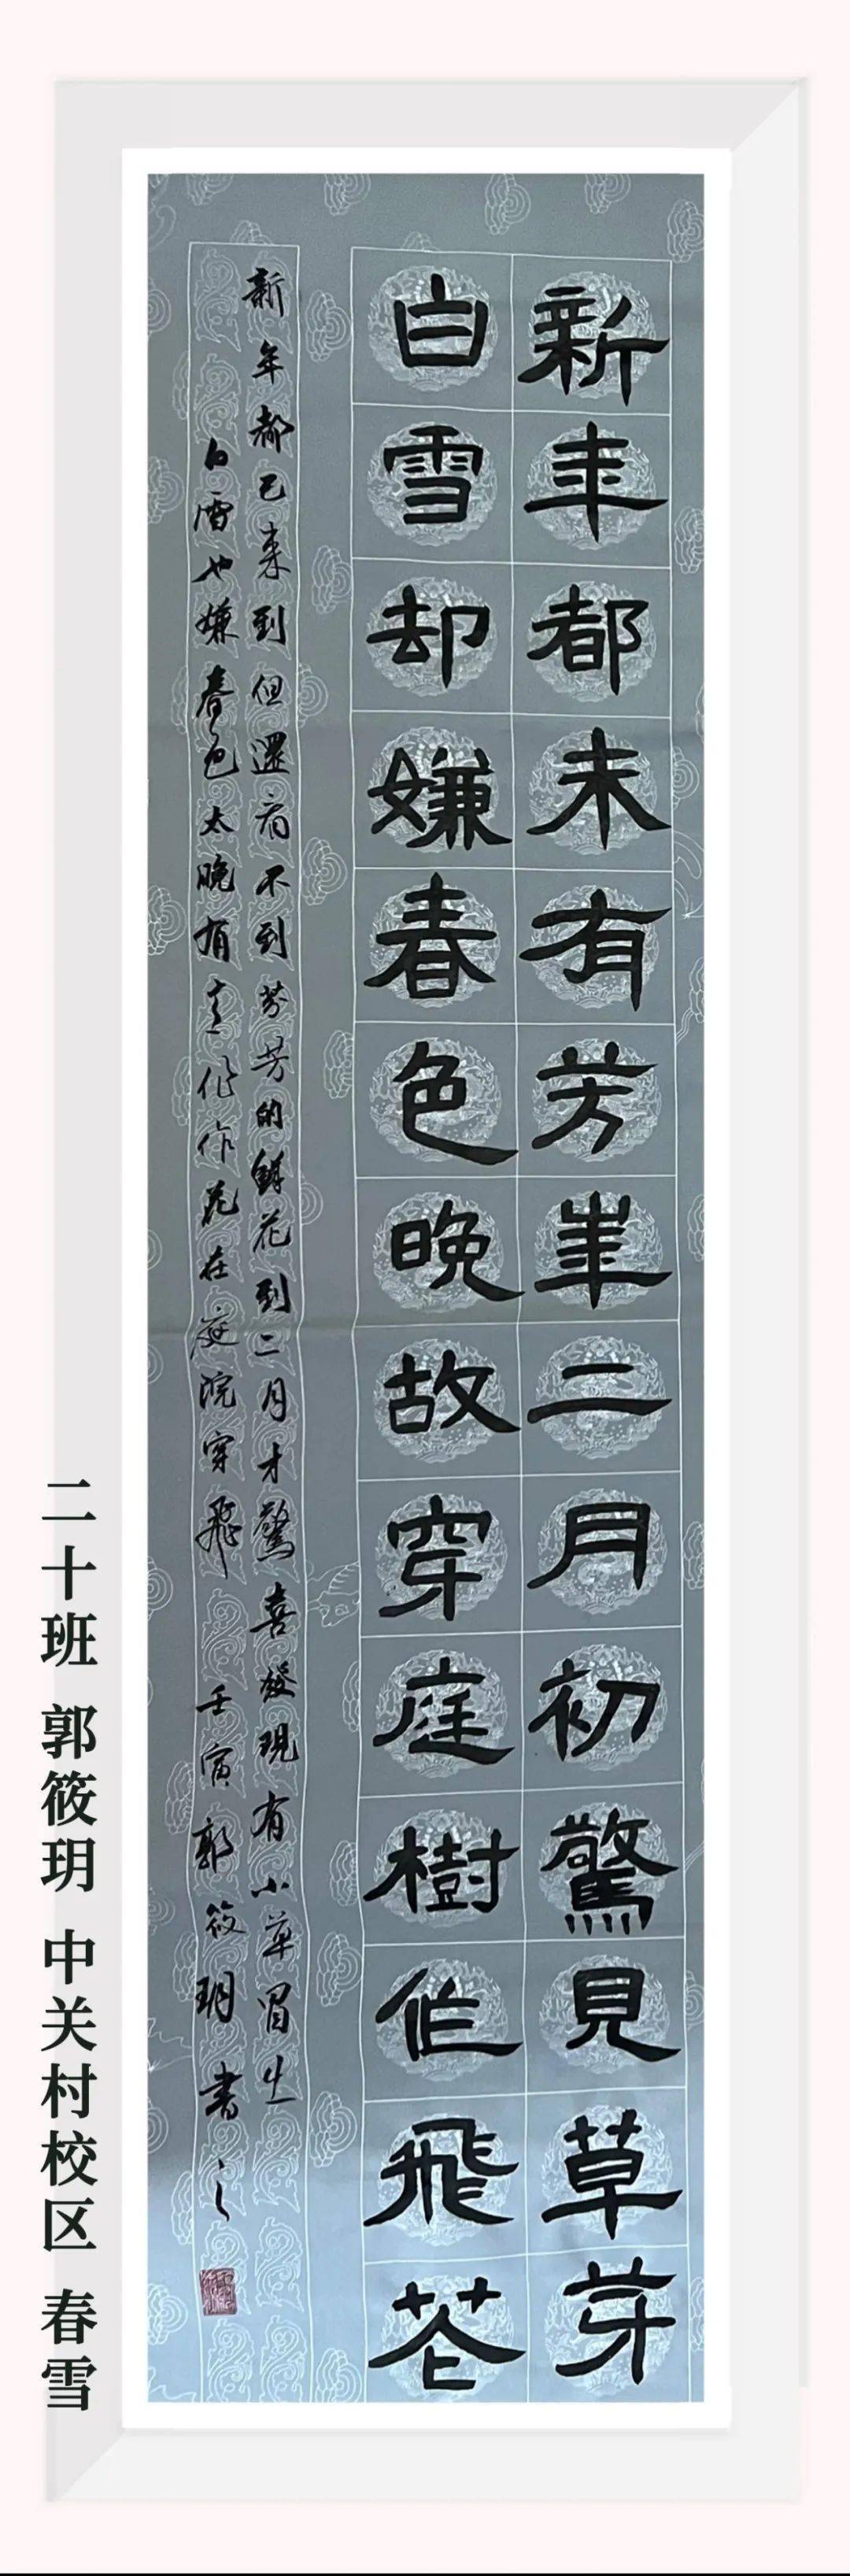 新年都未有芳華二月初驚見草芽
白雪却嫌春色晚故穿庭樹作飛花
新年都已来到但還看不到芬芳的鮮花到二月才驚喜發現有小草冒出
白雪也嫌春色太晚有意化作花在庭院穿飛 壬寅 郭筱玥書之
二十班 郭筱玥 中关村校区 春雪